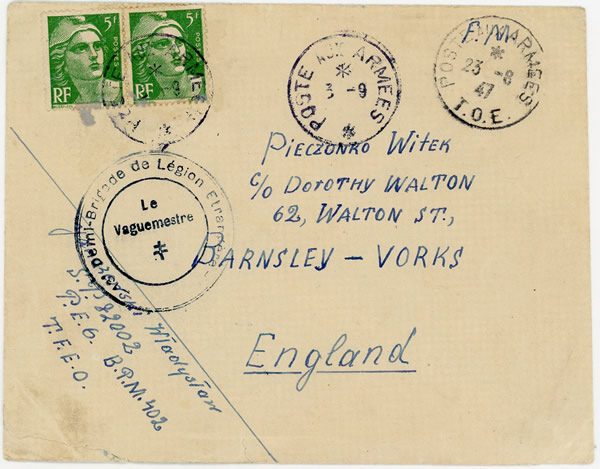 5F
POSTES
RF
5F
POSTES
RF
POSTE AUX ARMEES
3 -9
POSTE AUX ARMEES
3 -9
F.M
POSTE AUX ARMEES
23 -8
47
T.O.E.
PIECZONKO WITEK
C/o DOROTHY WALTON
62, WALTON ST.,
BARNSLEY – YORKS
England
Demi-Brigade de Légion Etrangère
Le
Vaguemestre
Władysław
S.P. 82002
P.E.G. B.P.M. 402
T.F.E.O.